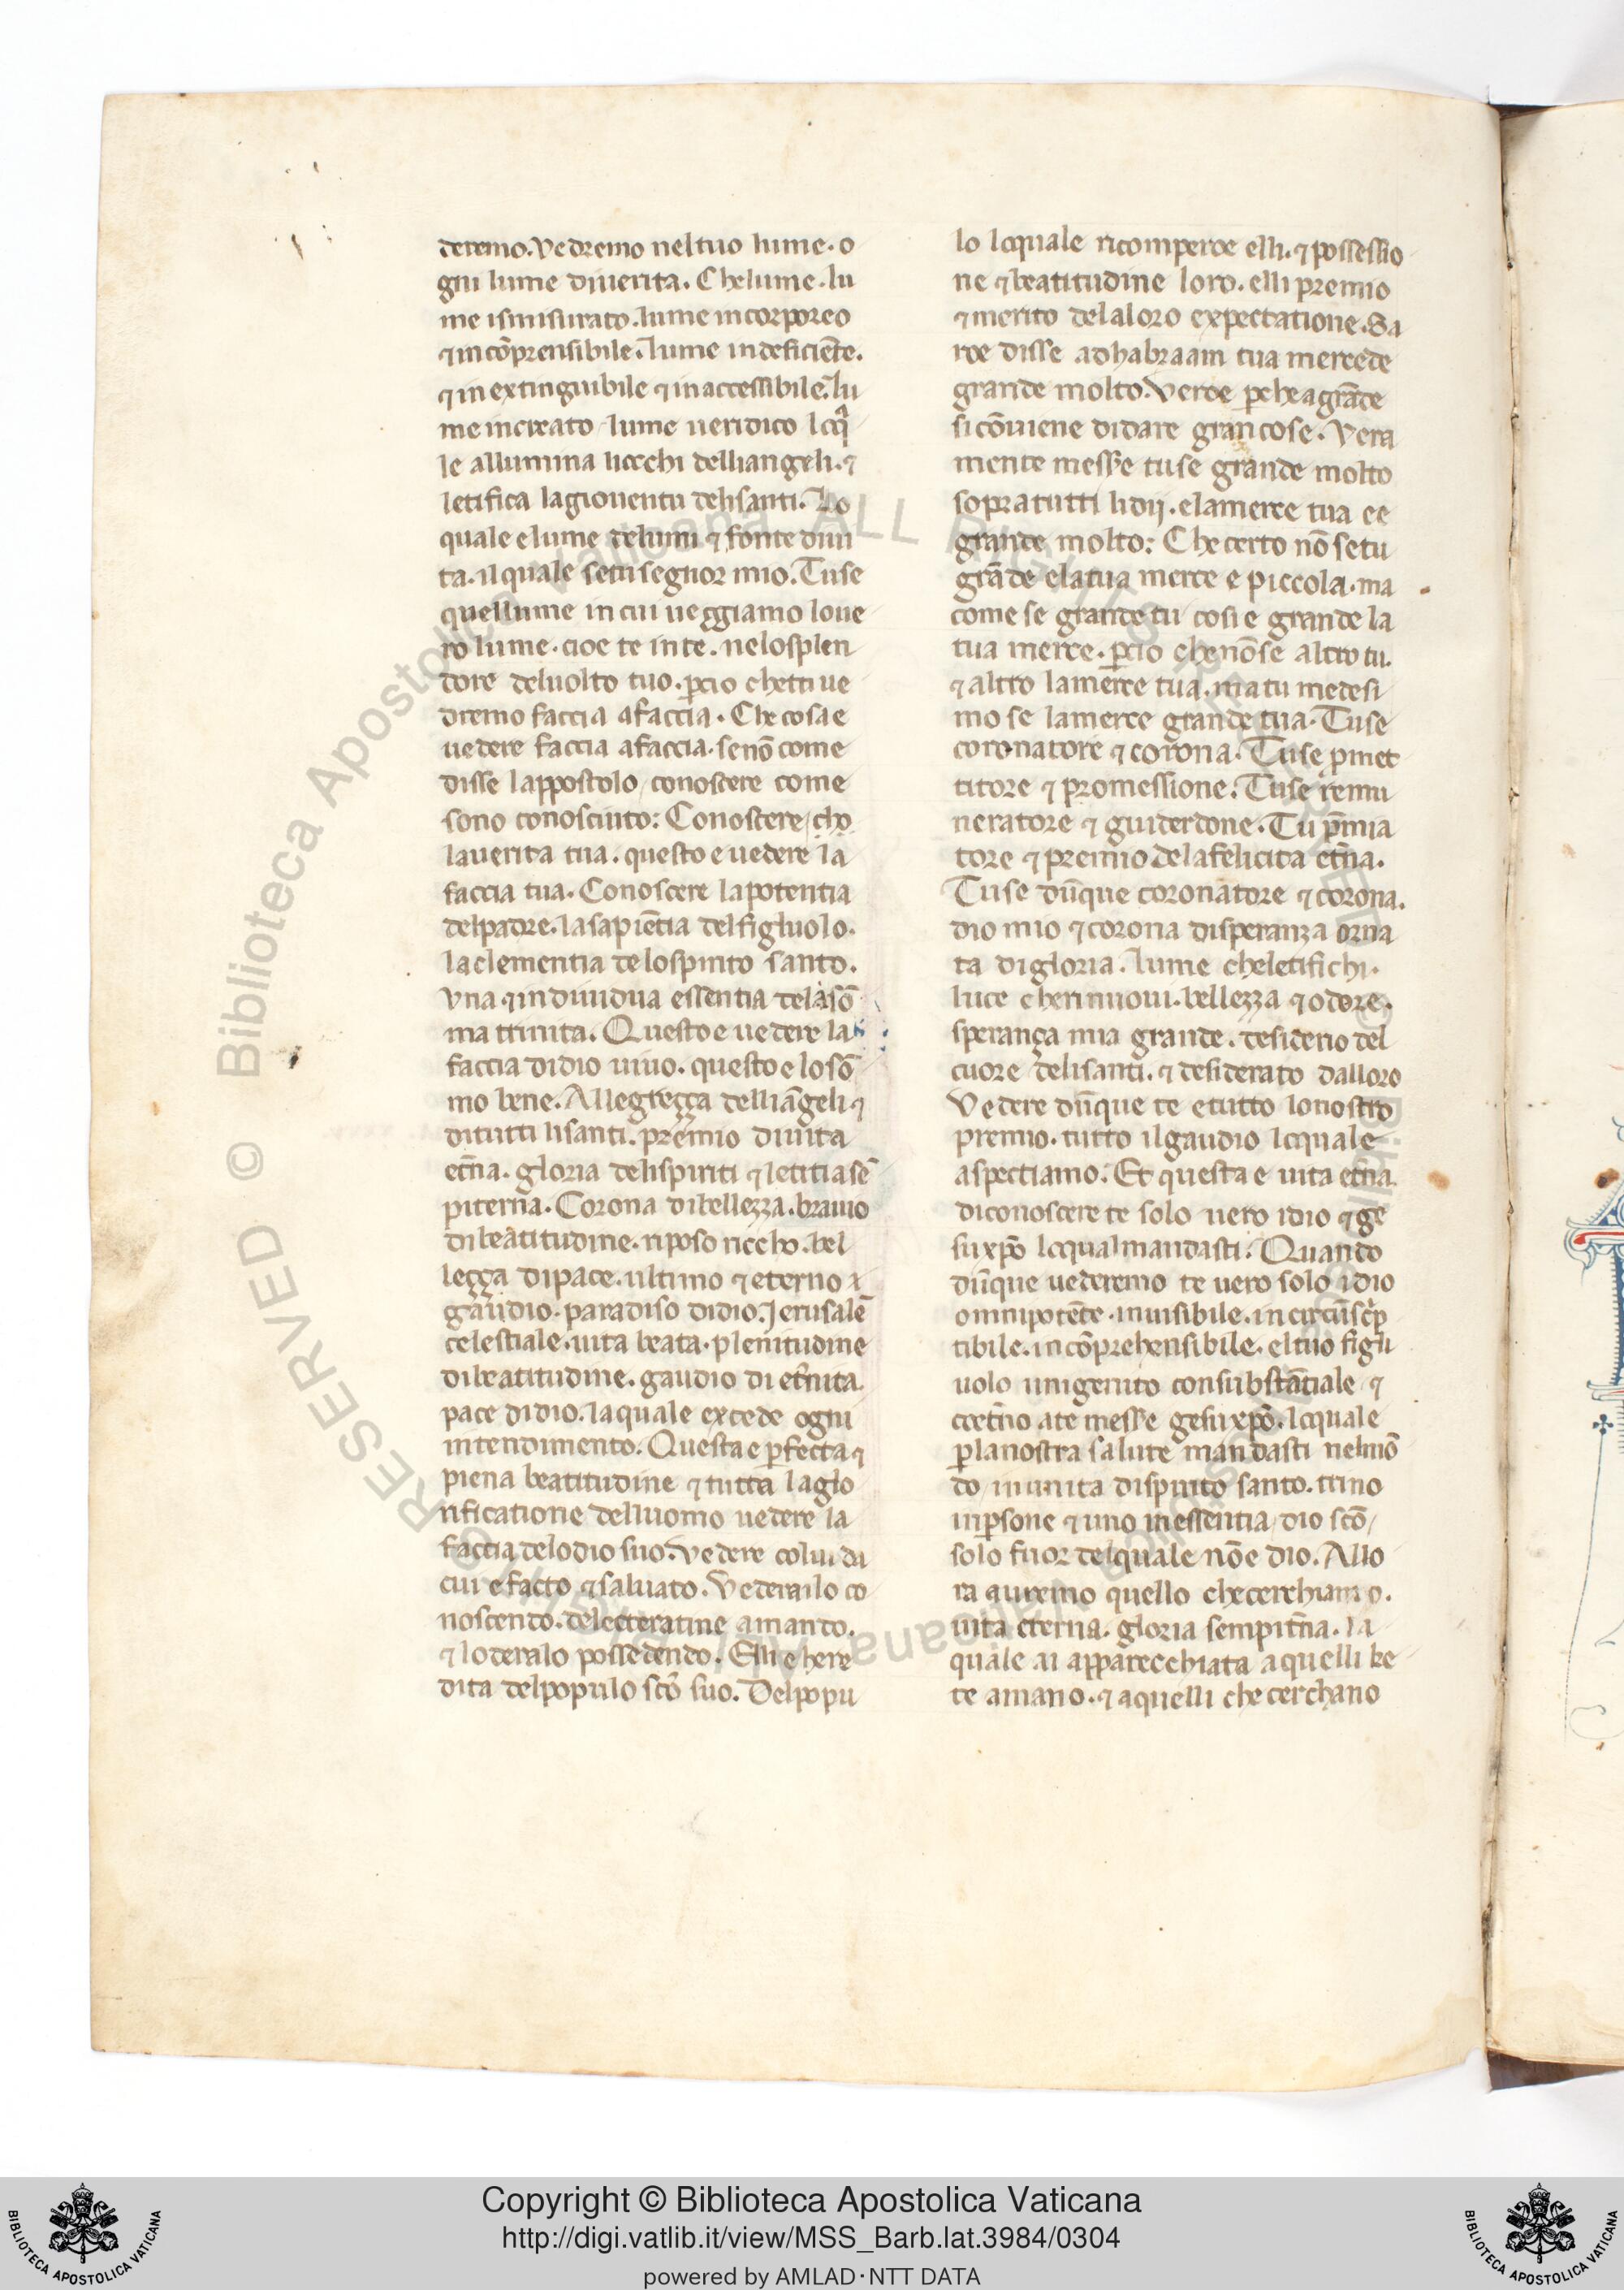 deremo. Vedremo neltuo lume. o
gni lume diuerita. Chelume. lu
me ismisurato. lume incorporeo
⁊ incōprensibile. lume indeficiēte.
⁊ inextinguibile ⁊ inaccessibile. lu
me increato / lume ueridico loq̄
le allumina liocchi delliangeli. ⁊
letifica lagiouentu delisanti. Lo
quale elume delumi ⁊ fonte diui
ta. ilquale setu segnor mio. Tuse
quellume in cui ueggiamo loue
ro lume. cioe te in te. nelosplen
dore deluolto tuo. p̄cio chetti ue
dremo faccia afaccia. Che cosa e
uedere faccia afaccia. senō come
disse lappostolo / conoscere come
sono conosciuto: Conoscere / cho
lauerita tua. questo e uedere la
faccia tua. Conoscere lapotentia
delpadre. lasapiētia delfigliuolo.
laclementia delospirito santo.
vna ⁊ indiuidua essentia delasō
ma trinita. Questo e uedere la
faccia didio uiuo. questo e losō
mo bene. Allegreçça delliāgeli ⁊
ditutti lisanti. premio diuita
et̄na. gloria delispiriti ⁊ letitia sē
piterna. Corona dibellezza. brauio
dibeatitudine. riposo riccho. bel
leçça dipace. ultimo ⁊ eterno
gaudio. paradiso didio. Jerusalē
celestiale. uita beata. plenitudine
dibeatitudine. gaudio di et̄nita.
pace didio. laquale excede ogni
intendimento. Questa e p̄fecta ⁊
piena beatitudine ⁊ tutta laglo
rificatione delluomo uedere la
faccia delodio suo. vedere colui da
cui e facto ⁊ saluato. Vederailo co
noscendo. deletteratine amando.
⁊ loderalo possedendo. Elli e here
dita delpopulo sc̄o suo. Delpopu
lo loquale ricomperoe elli. ⁊ possessio
ne ⁊ beatitudine loro. elli premio
⁊ merito delaloro expectatione. Sa
roe disse adhabraam tua mercede
grande molto. Veroe p̄che a grāde
si cōuiene didare gran cose. Vera
mente messe tuse grande molto
sopratutti lidij. elamerce tua ee
grande molto: Che certo nō setu
grāde elatua merce e piccola. ma
come se grande tu cosi e grande la
tua merce. p̄cio che nōse altro tu.
⁊ altro lamerce tua. ma tu medesi
mo se lamerce grande tua. Tuse
coronatore ⁊ corona. Tuse p̄met
titore ⁊ promessione. Tuse remu
neratore ⁊ guiderdone. Tu p̄mia
tore ⁊ premio delafelicita et̄na.
Tuse dūque coronatore ⁊ corona.
dio mio ⁊ corona disperanza orna
ta digloria. lume cheletifichi.
luce cherinnoui. bellezza ⁊ odore.
sperança mia grande. desiderio del
cuore delisanti. ⁊ desiderato dalloro
Vedere dūque te etutto lonostro
premio. tutto ilgaudio loquale
aspectiamo: Et questa e uita et̄na.
diconoscere te solo uero idio ⁊ ge
su xp̄o loqual mandasti. Quando
dūque uederemo te uero solo idio
omnipotēte. inuisibile. incircūscp
tibile. incōprehensibile. eltuo figli
uolo unigenito consubstātiale ⁊
coet̄no ate messe gesu xp̄o. loquale
p̄ lanostra salute mandasti nelmō
do / in unita dispirito santo. trino
inp̄sone ⁊ uno inessentia / dio sc̄o /
solo fuor delquale nōe dio. Allo
ra auremo quello checerchiamo.
uita eterna. gloria sempit̄na. la
quale ai apparecchiata aquelli ke
te amano. ⁊ aquelli che cerchano
© Biblioteca Apostolica Vaticana ALL RIGHTS RESERVED
Copyright © Biblioteca Apostolica Vaticana
http://digi.vatlib.it/view/MSS_Barb.lat.3984/0304
powered by AMLAD·NTT DATA
BIBLIOTECA APOSTOLICA VATICANA
BIBLIOTECA APOSTOLICA VATICANA